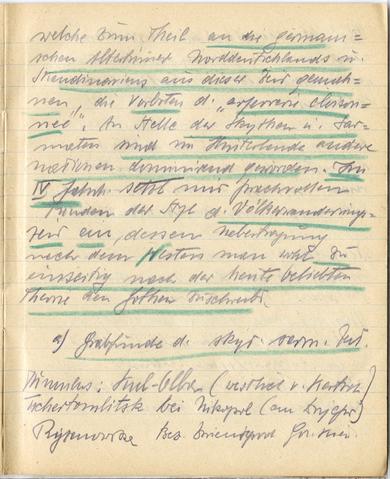 welche zum Theil an die germani=
schen Altertümer Norddeutschlands u.
Skandinaviens aus dieser Zeit gemah=
nen, die Vorboten d. „orfevrerie cloison=
née“. An Stelle der Skythen u. Sar=
maten sind im Hinterlande andere
nationen dominirend geworden. Im
IV Jahrh. setzt mit prachvollen
Funden der Styl d. Völkerwanderungs=
zeit ein, dessen Uebertragung
nach dem Westen man wohl zu
einseitig nach der heute beliebten
Theorie den Gothen zuschreibt.
a) Grabfunde d. skyt. sarm. Zeit.
Kul-Oba (westlich v. Kertsch)
Tschertomlitsk bei Nikopol (am Dnjepr)
Bez.